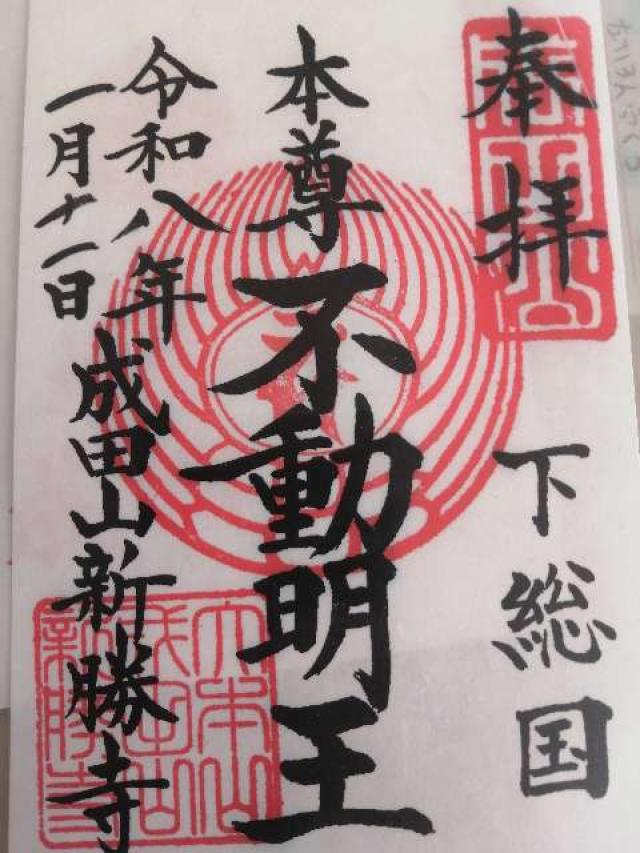 奉拝
下総国
本尊
不動明王
令和八年
一月十一日
成田山新勝寺
大本山
成田山
新勝寺